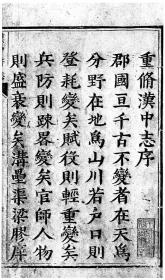 重脩漢中志序
郡國亘千古不變者在天爲
分野在地爲山川若戶口則
登耗變矣賦役則輕重變矣
兵防則踈畧變矣官師人物
則盛衰變矣溝洫渠梁膠庠